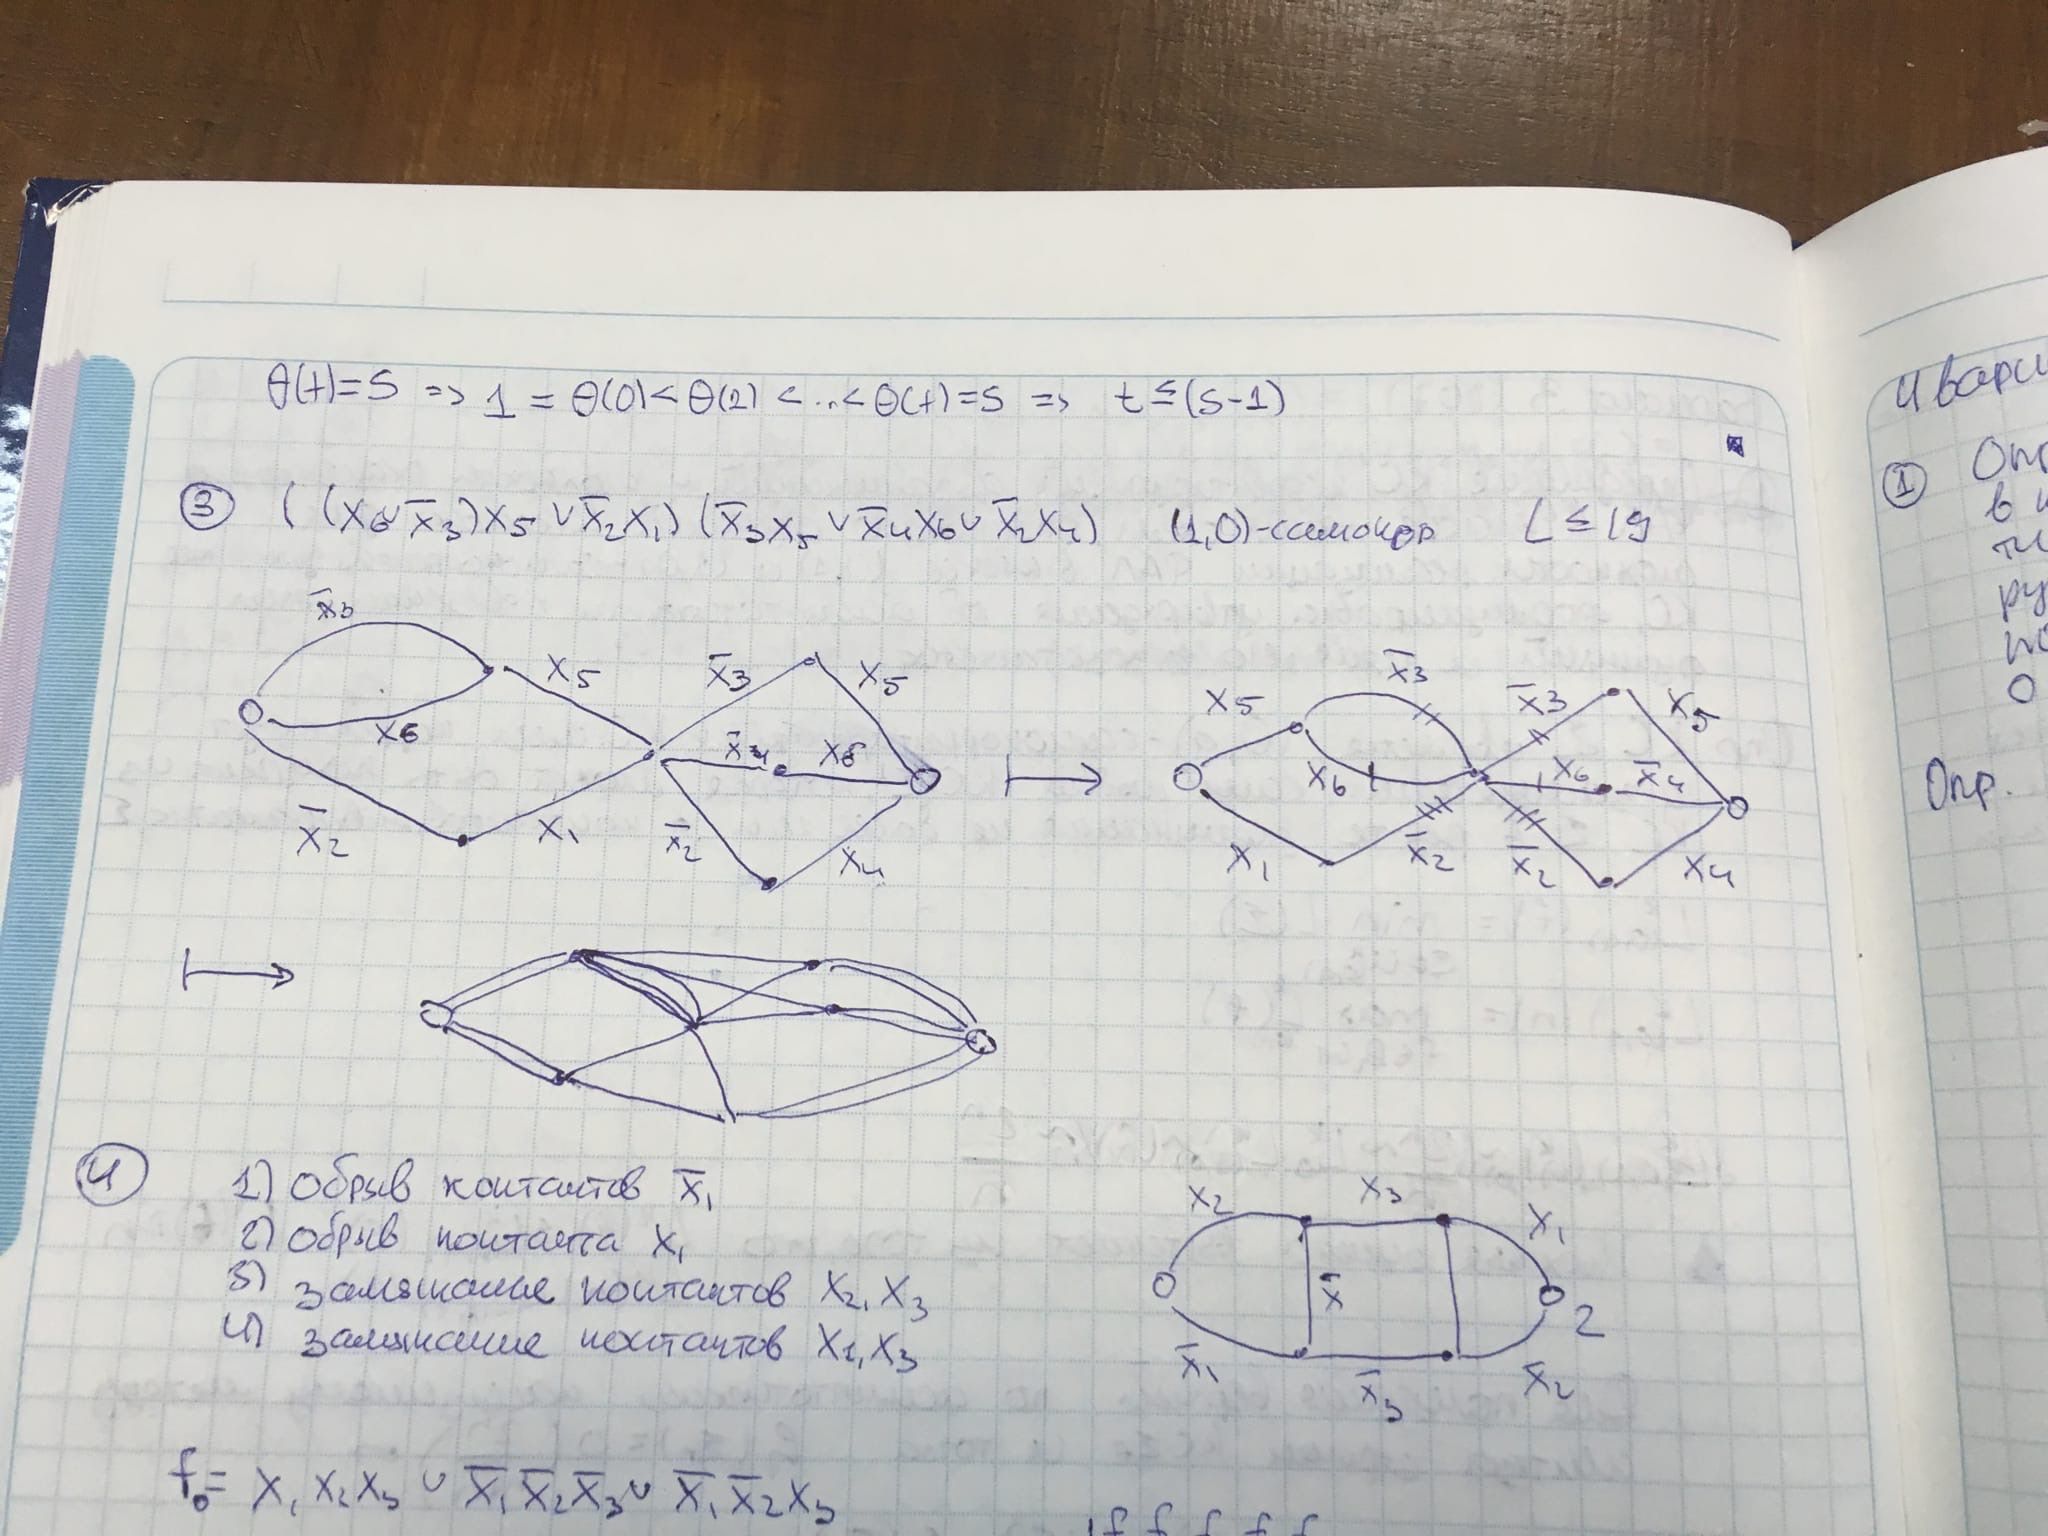 θ(t)=S => 1 = θ(0)<θ(1) <...<θ(t)=S => t≤(S-1)
③ ((x₆∨x̄₃)x₅ ∨x̄₂x₁) (x̄₃x₅ ∨x̄₄x₆∨x̄₂x₄) (1,0)-самокор L≤19
x̄₃ x₅ x̄₃ x₅
x₆ x̄₄ x₆
x̄₂ x₁ x̄₂ x₄
x₅ x̄₃ x̄₃ x₅
x₆ x₆ x̄₄
x₁ x̄₂ x̄₂ x₄
④ 1) Обрыв контактов x̄₁
2) обрыв контакта x₁
3) замыкание контактов x₂, x₃
4) замыкание контактов x₁, x₃
x₂ x₃ x₁
x̄ 2
x̄₁ x̄₃ x̄₂
f₀= x₁x₂x₃ ∨ x̄₁x̄₂x̄₃∨ x̄₁x̄₂x₃
4 вари
①
Опр.